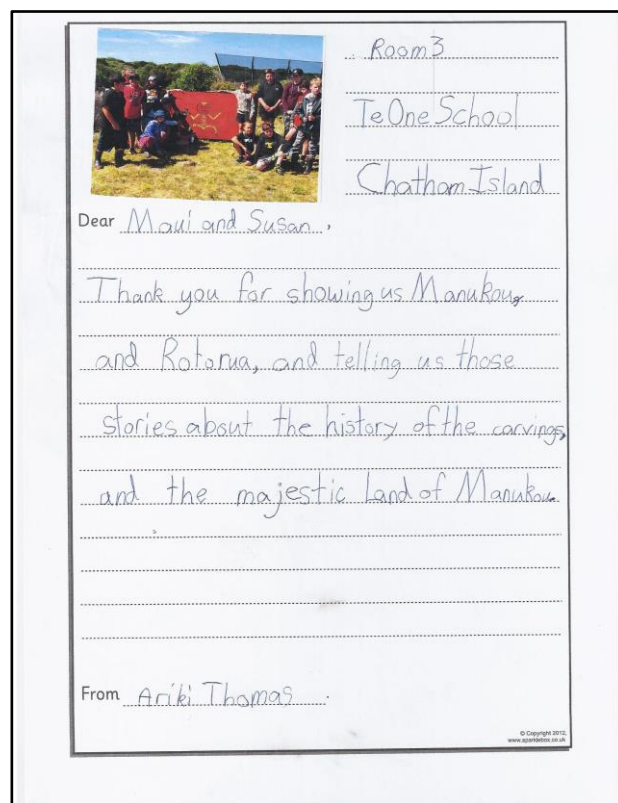 Room 3
Te One School
Chatham Island
Dear Maui and Susan,
Thank you for showing us Manukau,
and Rotorua, and telling us those
stories about the history of the carvings,
and the majestic Land of Manukau.
From Ariki Thomas.
© Copyright 2012,
www.sparklebox.co.uk